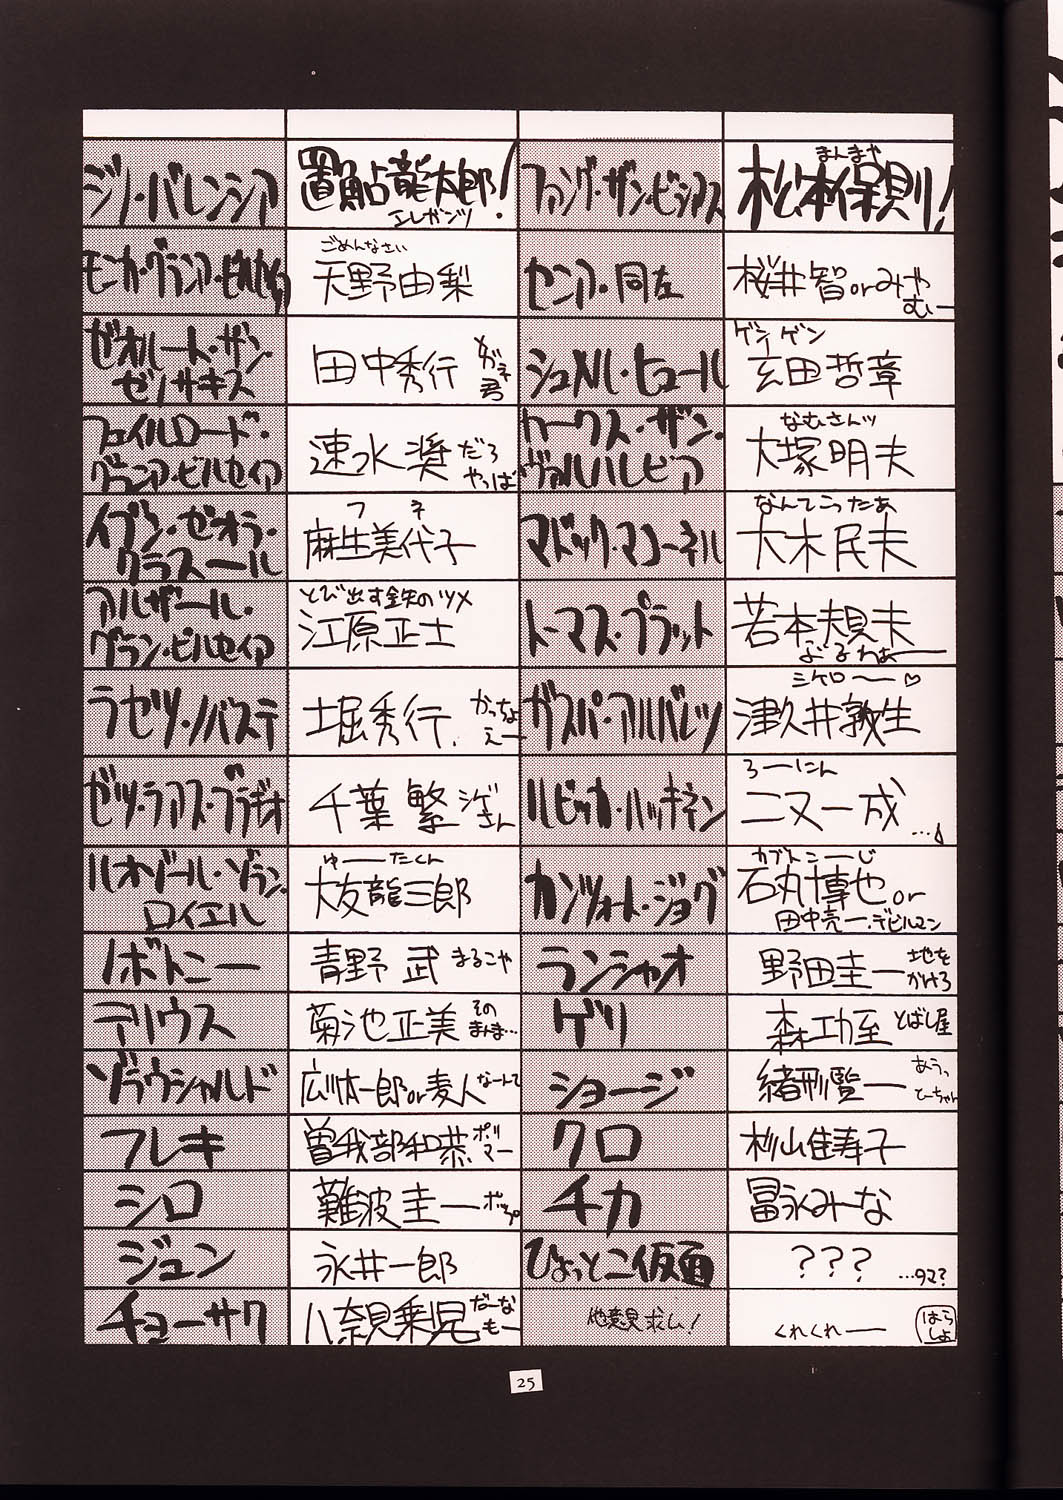 ジノ・バレンシア
置鮎龍太郎!
エレガンツ
ファング・ザン・ビシアス
まんまや
松本保則!
モニカ・グランア・ビルセイア
ごめんなさい
天野由梨
センア・同左
桜井智orみや
むー
ゼオルート・ザン・
ゼノサキス
田中秀行
めがネ君
シュメル・ヒュール
ゲンゲン
玄田哲章
フェイルロード・
グランア・ビルセイア
速水奨だろ
やっぱ
カークス・ザン・
ヴァルハレビア
なむさんッ
大塚明夫
イブン・ゼオラ・
クラスール
フネ
麻生美代子
マドック・マコーネル
なんてこったあ
大木民夫
アルザール・
グラン・ビルセイア
とび出す鉄のツメ
江原正士
トーマス・プラット
若本規夫
ぶるわぁー
ラセツ・ノバステ
土堀秀行.
かっちょ
えー
ガスパ・アルバレツ
ミケロ〜♡
津久井教生
ゼツ・ラアス・ブラギオ
千葉 繁
シゲさん
ルビッカ・ハッキネン
ろーにん
二又一成
…♪
ルオゾール・ゾラン・
ロイエル
ゆーたくん
大友龍三郎
カンツォート・ジョグ
カブトこーじ
石丸博也or
田中亮一・デビルマン
ノボトニー
青野 武
まるこや
ランシャオ
野田圭一
地を
かけろ
テリウス
菊池正美
その
まんま…
ゲリ
森功至
とばし屋
ゾラウシャルド
広川太一郎or麦人
なーんて
ショージ
緒形賢一
あうっ
とーちゃん
フレキ
曽我部和恭
ポリマー
クロ
杉山佳寿子
シロ
難波圭一
ポップ
チカ
冨永みーな
ジュン
永井一郎
ひょっとこ仮面
???
…タマ?
チョーサク
八奈見乗児
だーな
もー
他意見求ム!
くれくれー
はら
しょ
25